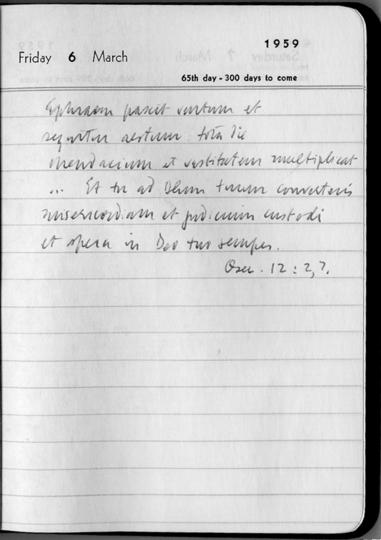 1959
Friday 6 March
65th day - 300 days to come
Ephraem pascit ventum et
sequitur aestum: tota die
mendacium et vastitatem multiplicat
... Et tu ad Deum tuum converteris
misericordiam et judicium custodi
et spera in Deo tuo semper.
Osee. 12:2,7.